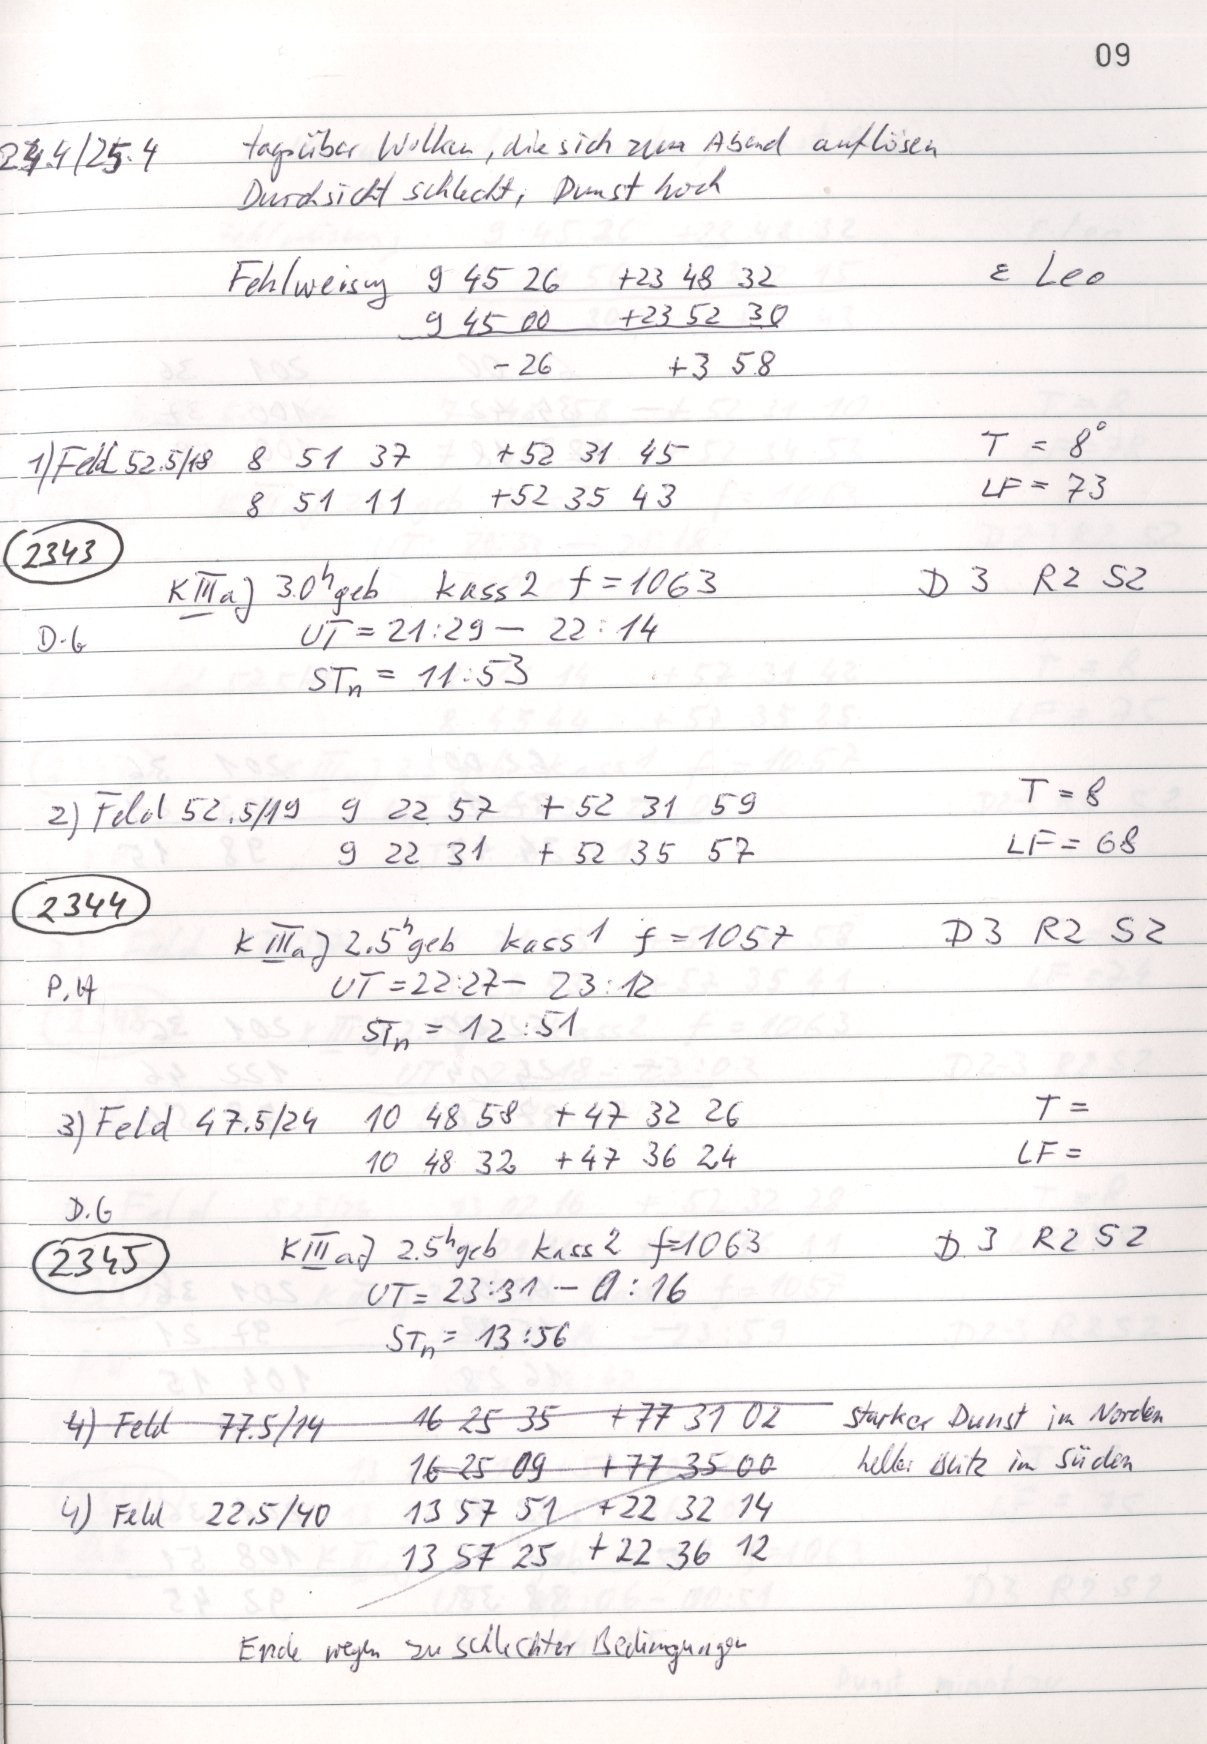 09
24.4/25.4 tagsüber Wolken, die sich zum Abend auflösen
Durchsicht schlecht, Dunst hoch
Fehlweisung 9 45 26 +23 48 32 ε Leo
9 45 00 +23 52 30
-26 +3 58
1) Feld 52.5/18 8 51 37 +52 31 45 T = 8°
8 51 11 +52 35 43 LF = 73
2343
K III aJ 3.0h geb kass 2 f = 1063 D 3 R2 S2
D.G UT = 21:29 – 22:14
STn = 11:53
2) Feld 52.5/19 9 22 57 +52 31 59 T = 8
9 22 31 +52 35 57 LF = 68
2344
K III aJ 2.5h geb kass 1 f = 1057 D3 R2 S2
P.H UT = 22:27 – 23:12
STn = 12:51
3) Feld 47.5/24 10 48 58 +47 32 26 T =
10 48 32 +47 36 24 LF =
D.G
2345 K III aJ 2.5h geb kass 2 f=1063 D 3 R2 S2
UT = 23:31 – 0:16
STn = 13:56
4) Feld 77.5/14 16 25 35 +77 31 02 starker Dunst im Norden
16 25 09 +77 35 00 heller Blitz im Süden
4) Feld 22.5/40 13 57 51 +22 32 14
13 57 25 +22 36 12
Ende wegen zu schlechter Bedingungen